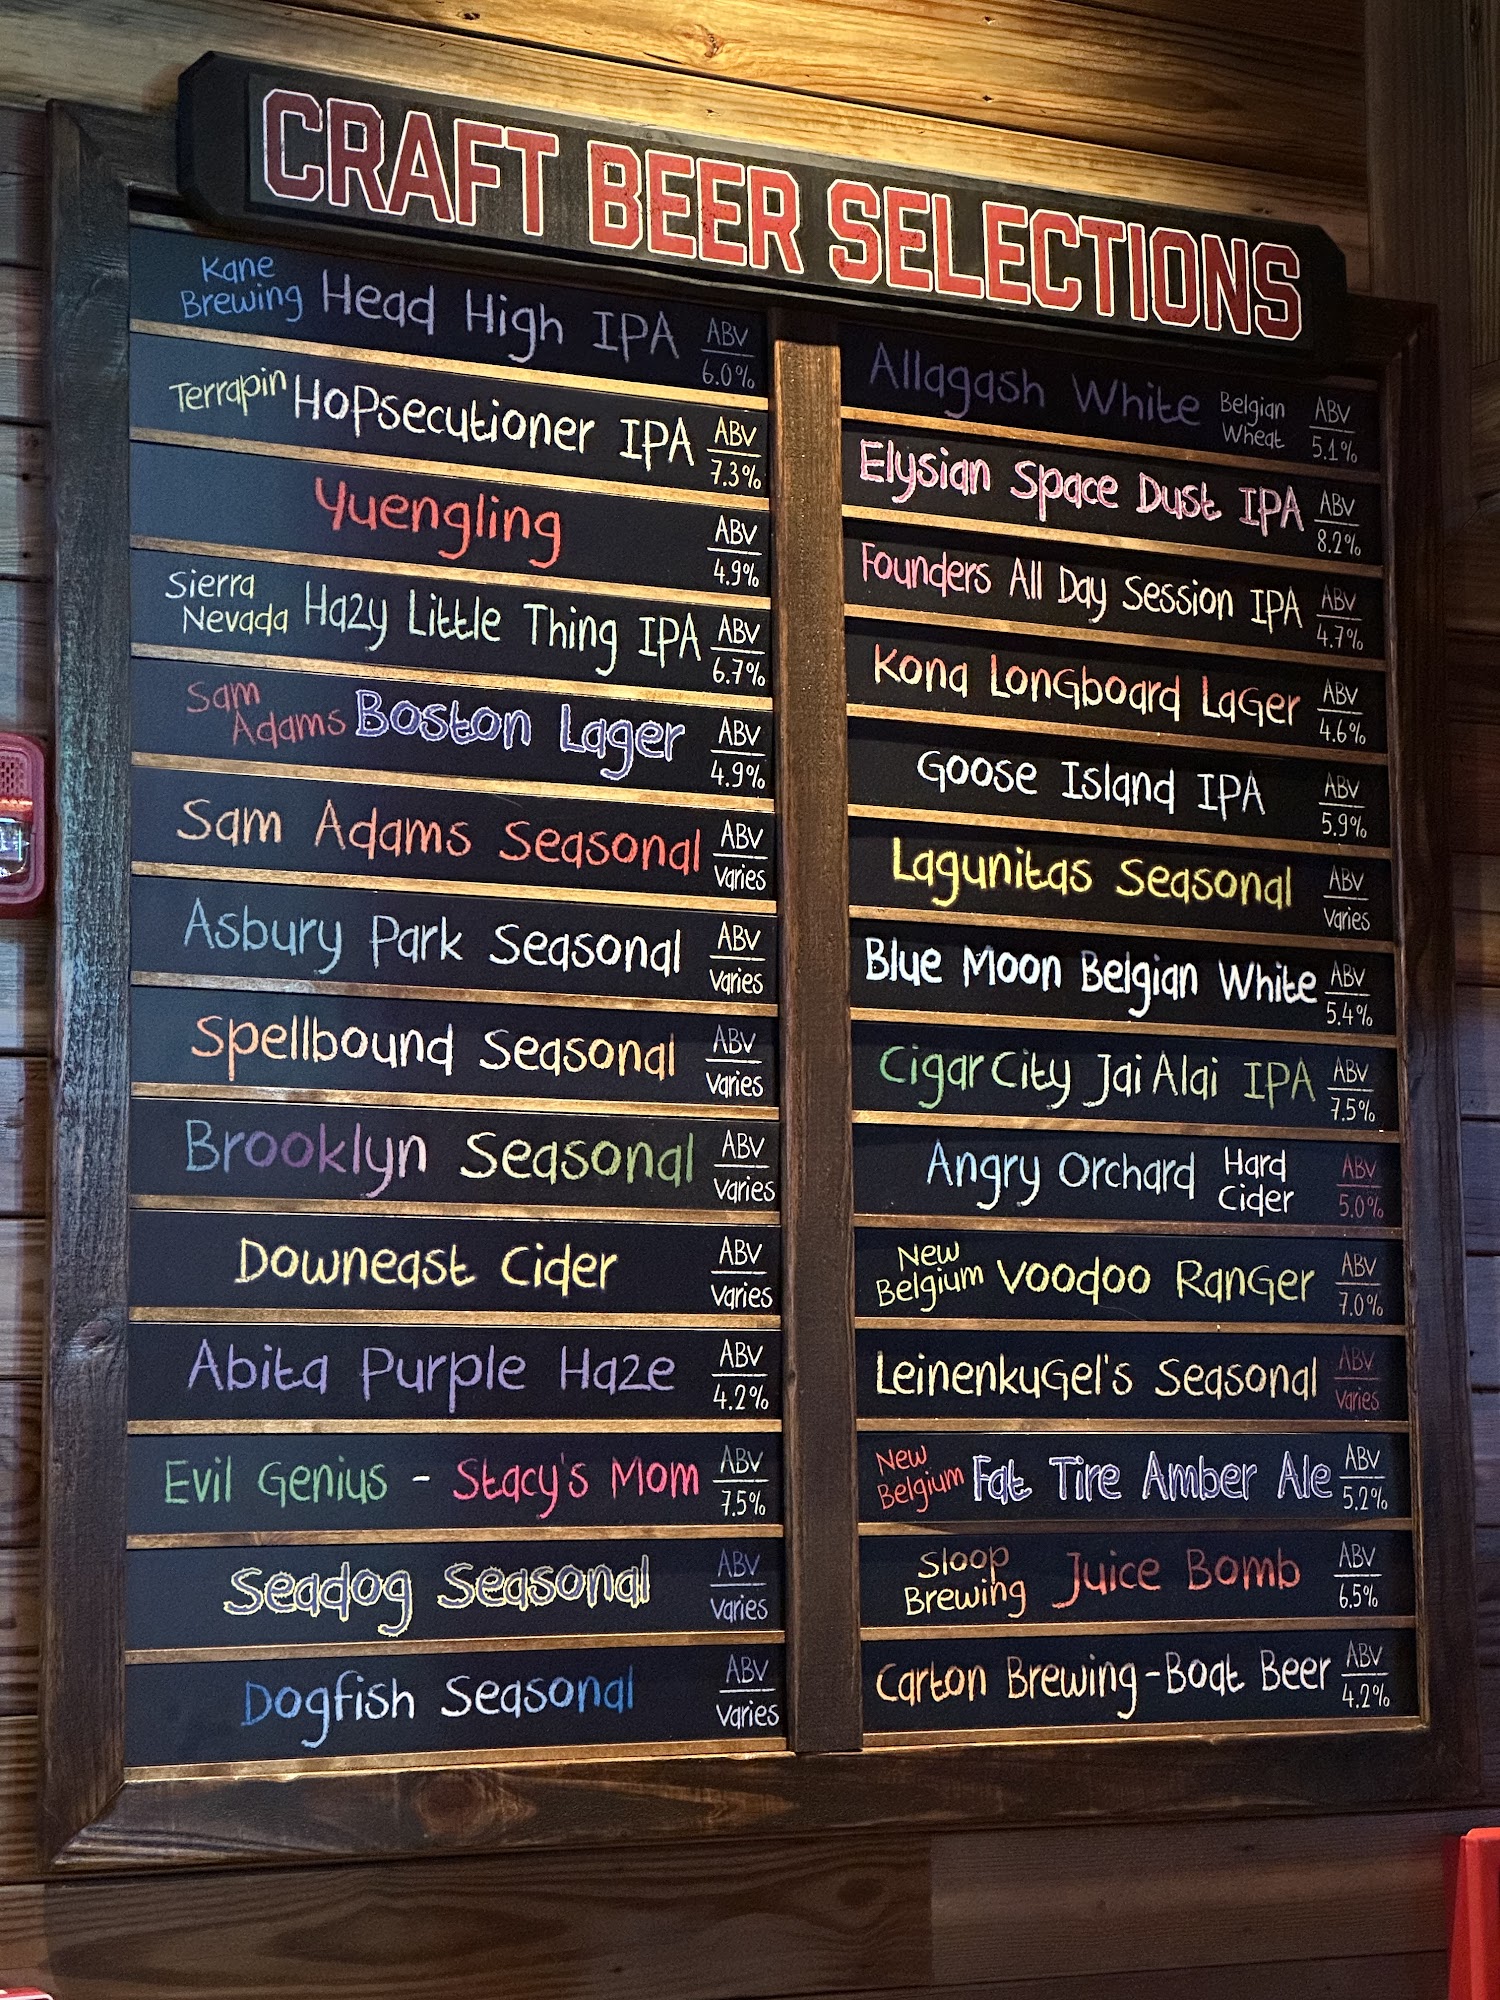 CRAFT BEER SELECTIONS
Kane Brewing Head High IPA ABV 6.0%
Terrapin HoPsecutioner IPA ABV 7.3%
Yuengling ABV 4.9%
Sierra Nevada Hazy Little Thing IPA ABV 6.7%
Sam Adams Boston Lager ABV 4.9%
Sam Adams Seasonal ABV Varies
Asbury Park Seasonal ABV Varies
Spellbound Seasonal ABV Varies
Brooklyn Seasonal ABV Varies
Downeast Cider ABV Varies
Abita Purple Haze ABV 4.2%
Evil Genius - Stacy's Mom ABV 7.5%
Seadog Seasonal ABV Varies
Dogfish Seasonal ABV Varies
Allagash White Belgian Wheat ABV 5.1%
Elysian Space Dust IPA ABV 8.2%
Founders All Day Session IPA ABV 4.7%
Kona LonGboard LaGer ABV 4.6%
Goose Island IPA ABV 5.9%
Lagunitas Seasonal ABV Varies
Blue Moon Belgian White ABV 5.4%
Cigar City Jai Alai IPA ABV 7.5%
Angry Orchard Hard Cider ABV 5.0%
New Belgium Voodoo RanGer ABV 7.0%
LeinenkuGel's Seasonal ABV Varies
New Belgium Fat Tire Amber Ale ABV 5.2%
Sloop Brewing Juice Bomb ABV 6.5%
Carton Brewing-Boat Beer ABV 4.2%